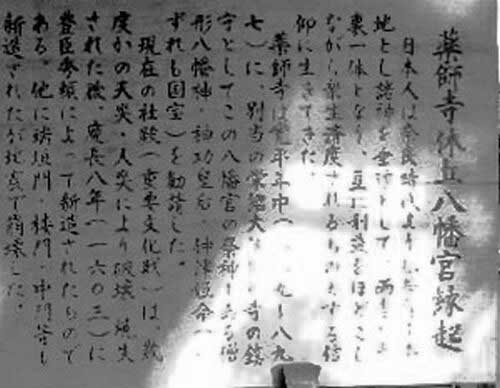 薬師寺休丘八幡宮縁起
日本人は奈良時代より
地とし諸神を垂迹として、両
裏一体となり、互に利益をほどこし
ながら衆生済度されるものとする信
仰に生きてきた。
薬師寺は寛平年中(九〜八九
七)に、別当の栄紹大寺の鎮
守としてこの八幡宮の祭神である僧
形八幡神・神功皇后・仲津姫命(い
ずれも国宝)を勧請した。
現在の社殿(重要文化財)は、幾
度かの天災・人災により破壊、焼失
された後、慶長八年(一六〇三)に
豊臣秀頼によって新造されたもので
ある。他に瑞垣門・楼門・中門等も
新造されたが地震で崩壊した。